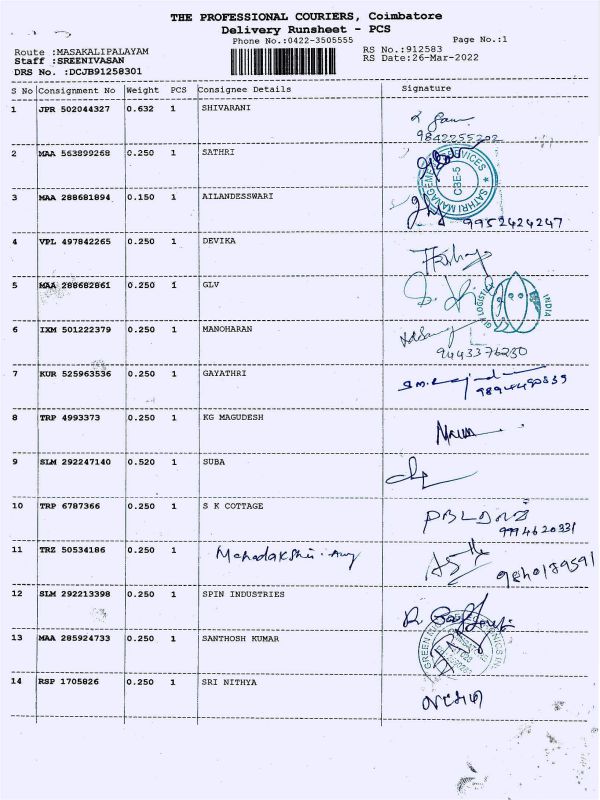 THE PROFESSIONAL COURIERS, Coimbatore
Delivery Runsheet - PCS
Phone No.:0422-3505555 Page No.:1
Route :MASAKALIPALAYAM RS No.:912583
Staff :SREENIVASAN RS Date:26-Mar-2022
DRS No. :DCJB91258301
S No Consignment No Weight PCS Consignee Details Signature
1 JPR 502044327 0.632 1 SHIVARANI
9842255202
2 MAA 563899268 0.250 1 SATHRI
SATHRI MANAGEMENT SERVICES CBE-5
3 MAA 288681894 0.150 1 AILANDESSWARI
9952424247
4 VPL 497842265 0.250 1 DEVIKA
5 MAA 288682861 0.250 1 GLV
INDIA
6 IXM 501222379 0.250 1 MANOHARAN
9443376230
7 KUR 525963536 0.250 1 GAYATHRI
8 TRP 4993373 0.250 1 KG MAGUDESH
9 SLM 292247140 0.520 1 SUBA
10 TRP 6787366 0.250 1 S K COTTAGE
9994620331
11 TRZ 50534186 0.250 1
12 SLM 292213398 0.250 1 SPIN INDUSTRIES
13 MAA 285924733 0.250 1 SANTHOSH KUMAR
GREEN
14 RSP 1705826 0.250 1 SRI NITHYA